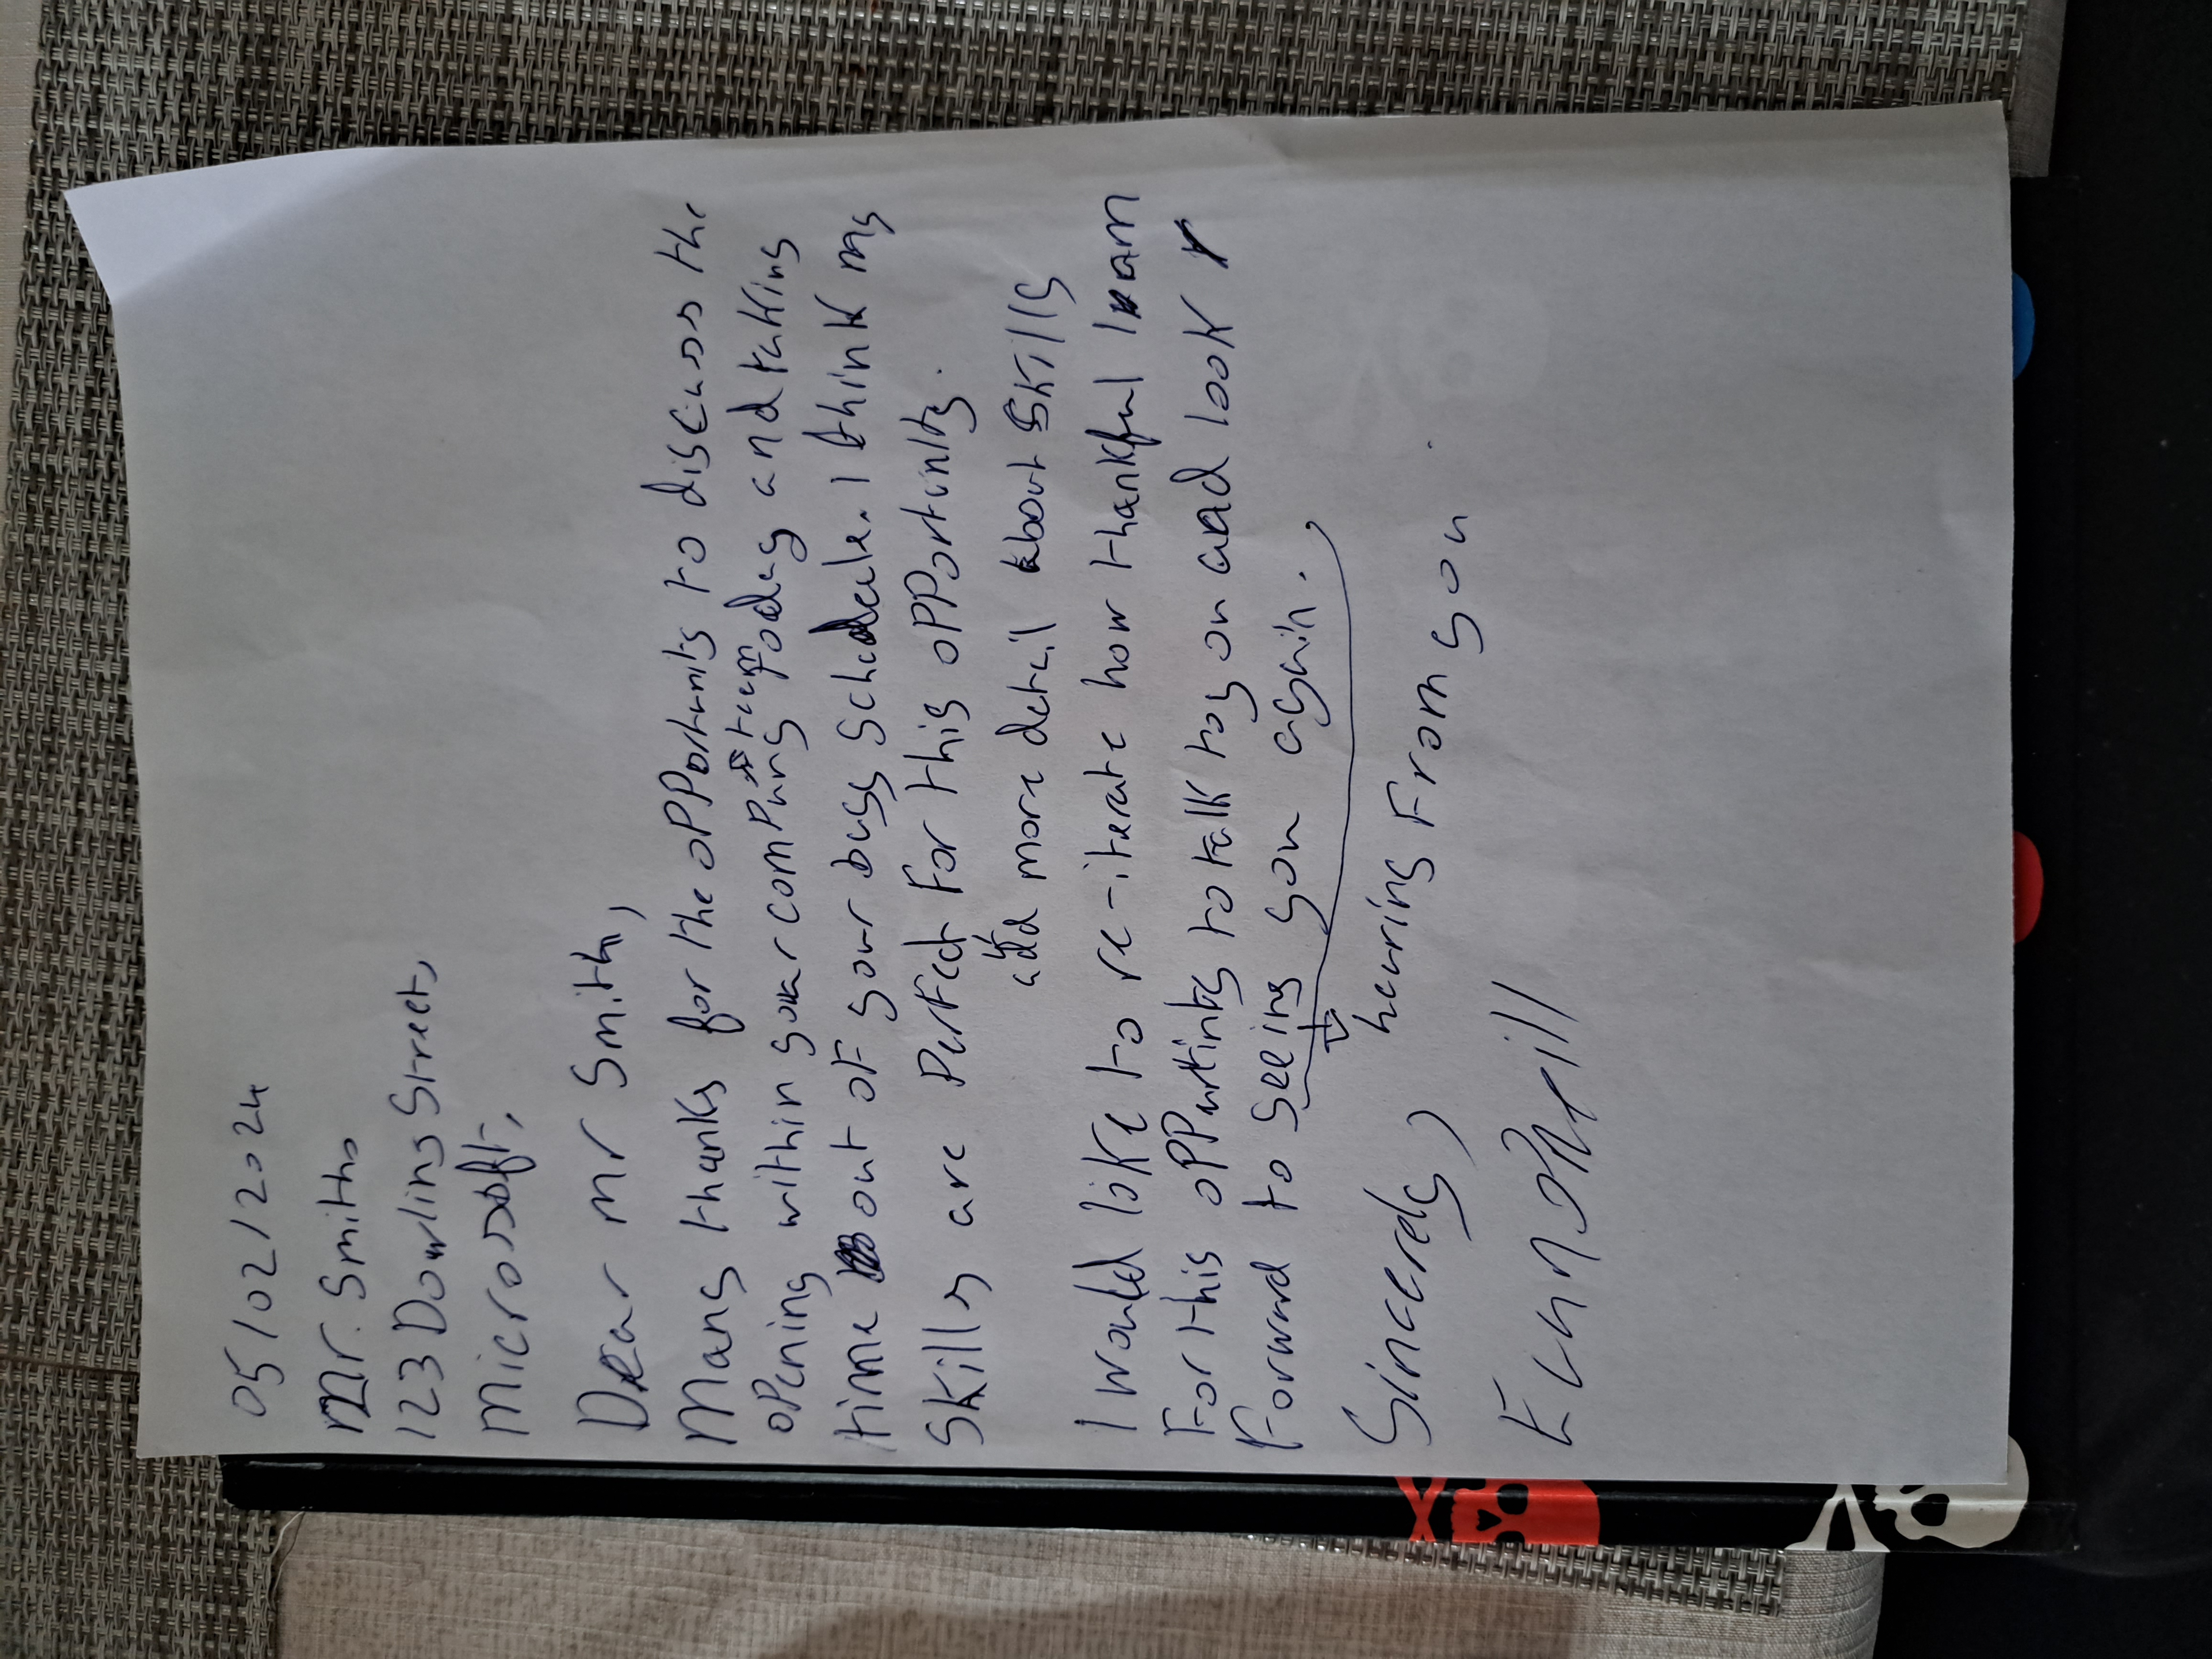 05/02/2024
Mr. Smith,
123 Dowling Street,
Microsoft,
Dear Mr Smith,
Many thanks for the opportunity to discuss the
team
opening within your company today and taking
time out of your busy schedule. I think my
skills are perfect for this opportunity.
add more detail about skills
I would like to re-iterate how thankful I am
for this oppurtinity to talk to you and look
forward to seeing you again.
hearing from you
Sincerely,
Euan O'Neill